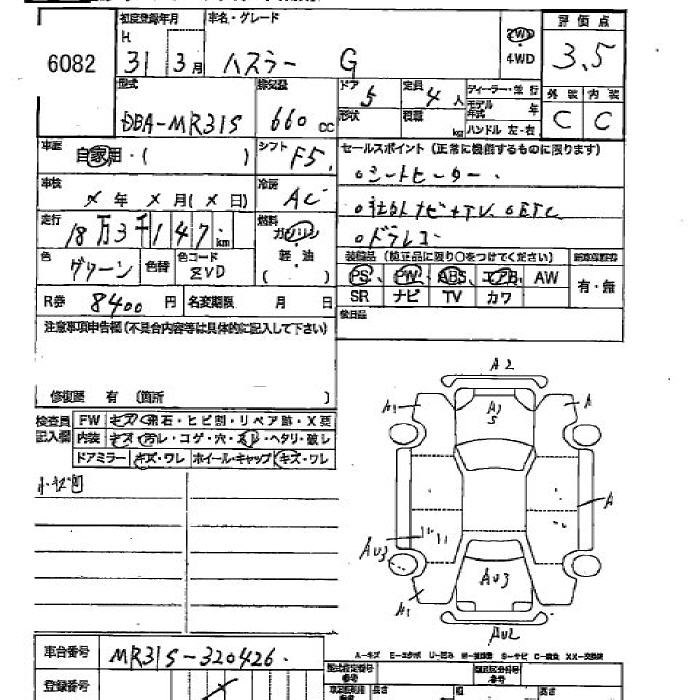 6082
初度登録年月 車名・グレード 評価点
H 31 3月 ハスラー G 2WD・4WD 3.5
型式 排気量 ドア 定員 ディーラー・並行 外装 内装
DBA-MR31S 660cc 5 4人 モデル年式 年 C C
形状 積載 kg ハンドル 左・右
車歴 自家用・( ) シフト F5 セールスポイント(正常に機能するものに限ります)
車検 メ年 メ月(メ日) 冷房 AC ○シートヒーター
○社外ナビ+TV ○ETC
走行 18万3千147km 燃料 ガソリン ○ドラレコ
軽油 ( )
色 グリーン 色替 色コード ZVD 装備品(純正品に限り○をつけてください)
PS、PW、ABS、エアB、AW 有・無
R券 8400円 名変期限 月 日 SR ナビ TV カワ
注意事項申告欄(不具合内容等は具体的に記入して下さい) 後日品
修復歴 有(箇所 )
検査員記入欄 FW キズ・飛石・ヒビ割・リペア跡・X要
内装 キズ・汚レ・コゲ・穴・スレ・ヘタリ・破レ
ドアミラー キズ・ワレ ホイール・キャップ キズ・ワレ
A2
A
A
AU3
AU3
AU2
A-キズ E-エクボ U-凹ミ W-波修理 S-サビ C-腐食 XX-交換済
車台番号 MR31S-320426 型式指定番号 類別区分番号
登録番号 長さ 幅 高さ